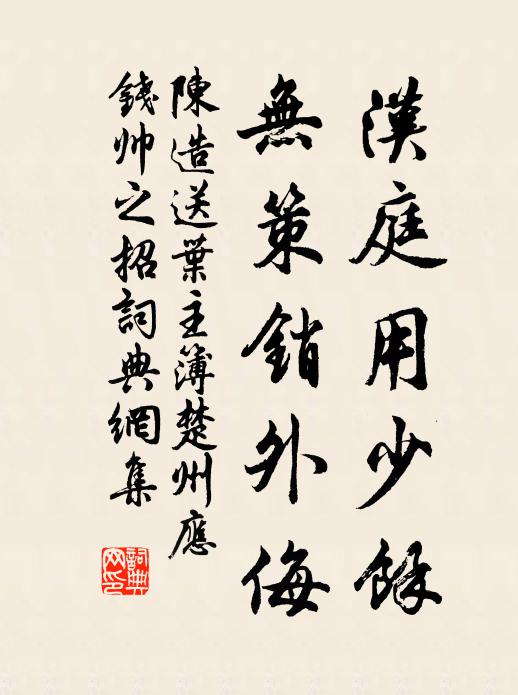 漢庭用少餘
無策銷外侮
陳造送葉主簿楚州應
錢帅之招詞典網集
詞典網印